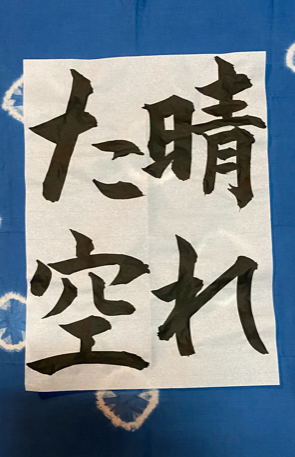 晴れ
た空